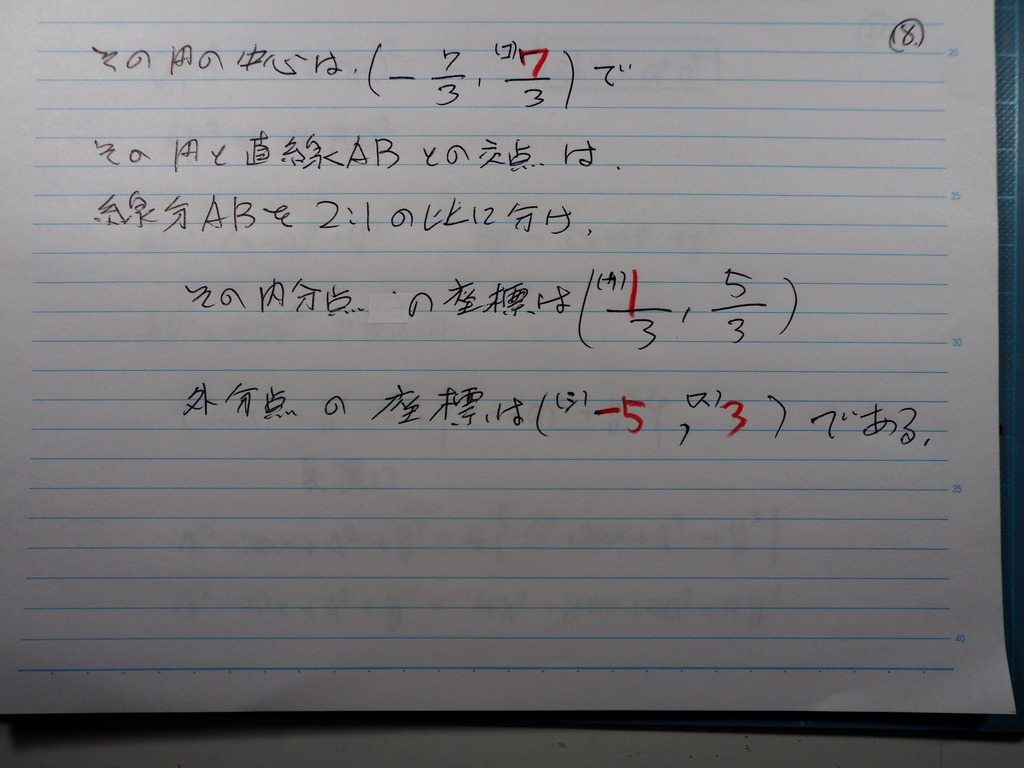 (8.)
その円の中心は, (- 7/3, (コ)7/3) で
その円と直線ABとの交点は,
線分ABを2:1の比に分け,
その内分点 の座標は((サ)1/3, 5/3)
外分点 の 座標は((シ)-5, (ス)3) である.
20
25
30
35
40